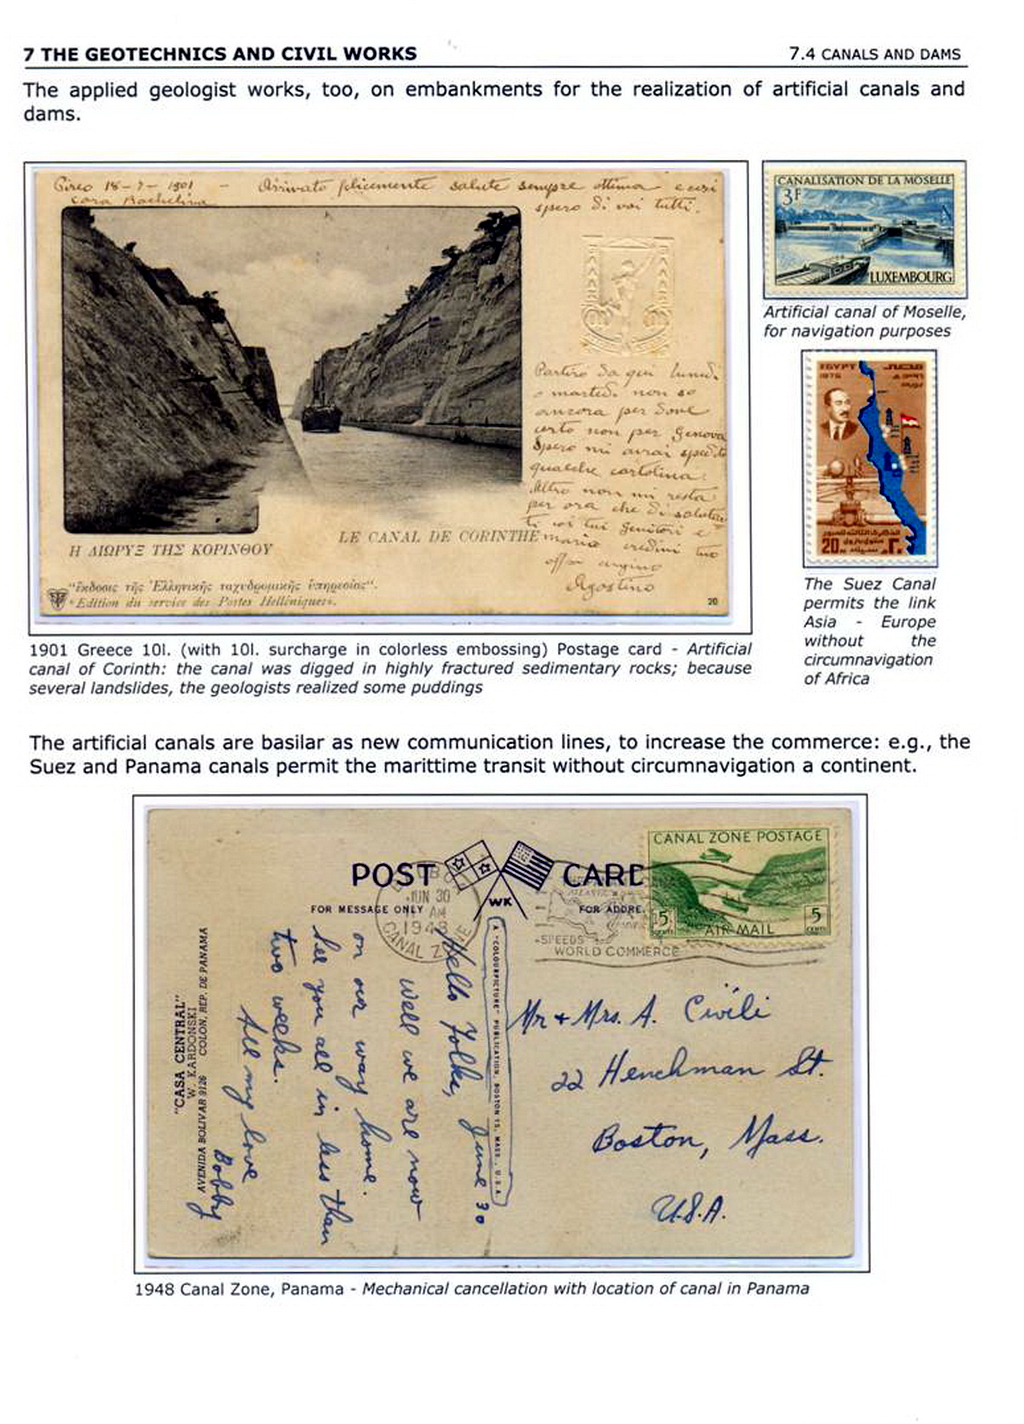 7 THE GEOTECHNICS AND CIVIL WORKS
7.4 CANALS AND DAMS
The applied geologist works, too, on embankments for the realization of artificial canals and
dams.
Pireo 18-7-1901 - Arrivato felicemente salute sempre ottima e così
cara
spero di voi tutti.
Partirò da qui lunedì
o martedì non so
ancora per dove
certo non per Genova
Spero mi avrai spedito
qualche cartolina.
Altro non mi resta
per ora che di salutar
ti coi tuoi genitori e
Maria credimi tuo
cugino
Agostino
Η ΔΙΩΡΥΞ ΤΗΣ ΚΟΡΙΝΘΟΥ
LE CANAL DE CORINTHE
"Ἔκδοσις τῆς Ἑλληνικῆς ταχυδρομικῆς ὑπηρεσίας".
"Edition du service des Postes Helléniques".
20
CANALISATION DE LA MOSELLE
3F
LUXEMBOURG
Artificial canal of Moselle,
for navigation purposes
EGYPT
مصر
1976
20
The Suez Canal
permits the link
Asia - Europe
without the
circumnavigation
of Africa
1901 Greece 10l. (with 10l. surcharge in colorless embossing) Postage card - Artificial
canal of Corinth: the canal was digged in highly fractured sedimentary rocks; because
several landslides, the geologists realized some puddings
The artificial canals are basilar as new communication lines, to increase the commerce: e.g., the
Suez and Panama canals permit the marittime transit without circumnavigation a continent.
POST CARD
WK
FOR MESSAGE ONLY
FOR ADDRE
JUN 30
AM
1948
CANAL ZONE
SPEEDS
WORLD COMMERCE
CANAL ZONE POSTAGE
15 CENTS
AIR MAIL
5 CENTS
"CASA CENTRAL"
W. KARDONSKI
AVENIDA BOLIVAR 9126 COLON, REP. DE PANAMA
A "COLOURPICTURE" PUBLICATION, BOSTON 15, MASS., U.S.A.
June 30
Hello Folks,
Well we are now
on our way home.
See you all in less than
two weeks.
All my love
Bobby
Mr & Mrs. A. Civili
22 Henchman St.
Boston, Mass.
U.S.A.
1948 Canal Zone, Panama - Mechanical cancellation with location of canal in Panama